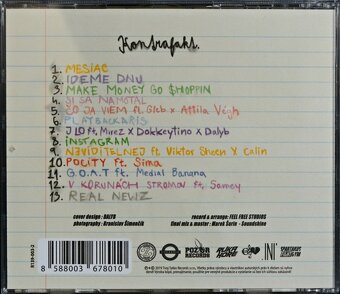 Kontrafakt.
1. MESIAC
2. IDEME DNU
3. MAKE MONEY GO $HOPPIN
4. SI SA NAMOTAL
5. ČO JA VIEM ft. Gleb x Attila Végh
6. PLAYBACKARIS
7. JLO ft. Mirez x Dokkeytino x Dalyb
8. INSTAGRAM
9. NEVIDITELNEJ ft Viktor Sheen x Calin
10. POCITY ft. Sima
11. G.O.A.T ft. Medial Banana
12. V KORUNÁCH STROMOV ft. Samey
13. REAL NEWZ
cover design : DALYB
photography : Branislav Šimončík
record & arrange: FEEL FREE STUDIOS
final mix & master : Marek Šurin - Soundshine
8139-003-2
8 588003 678010